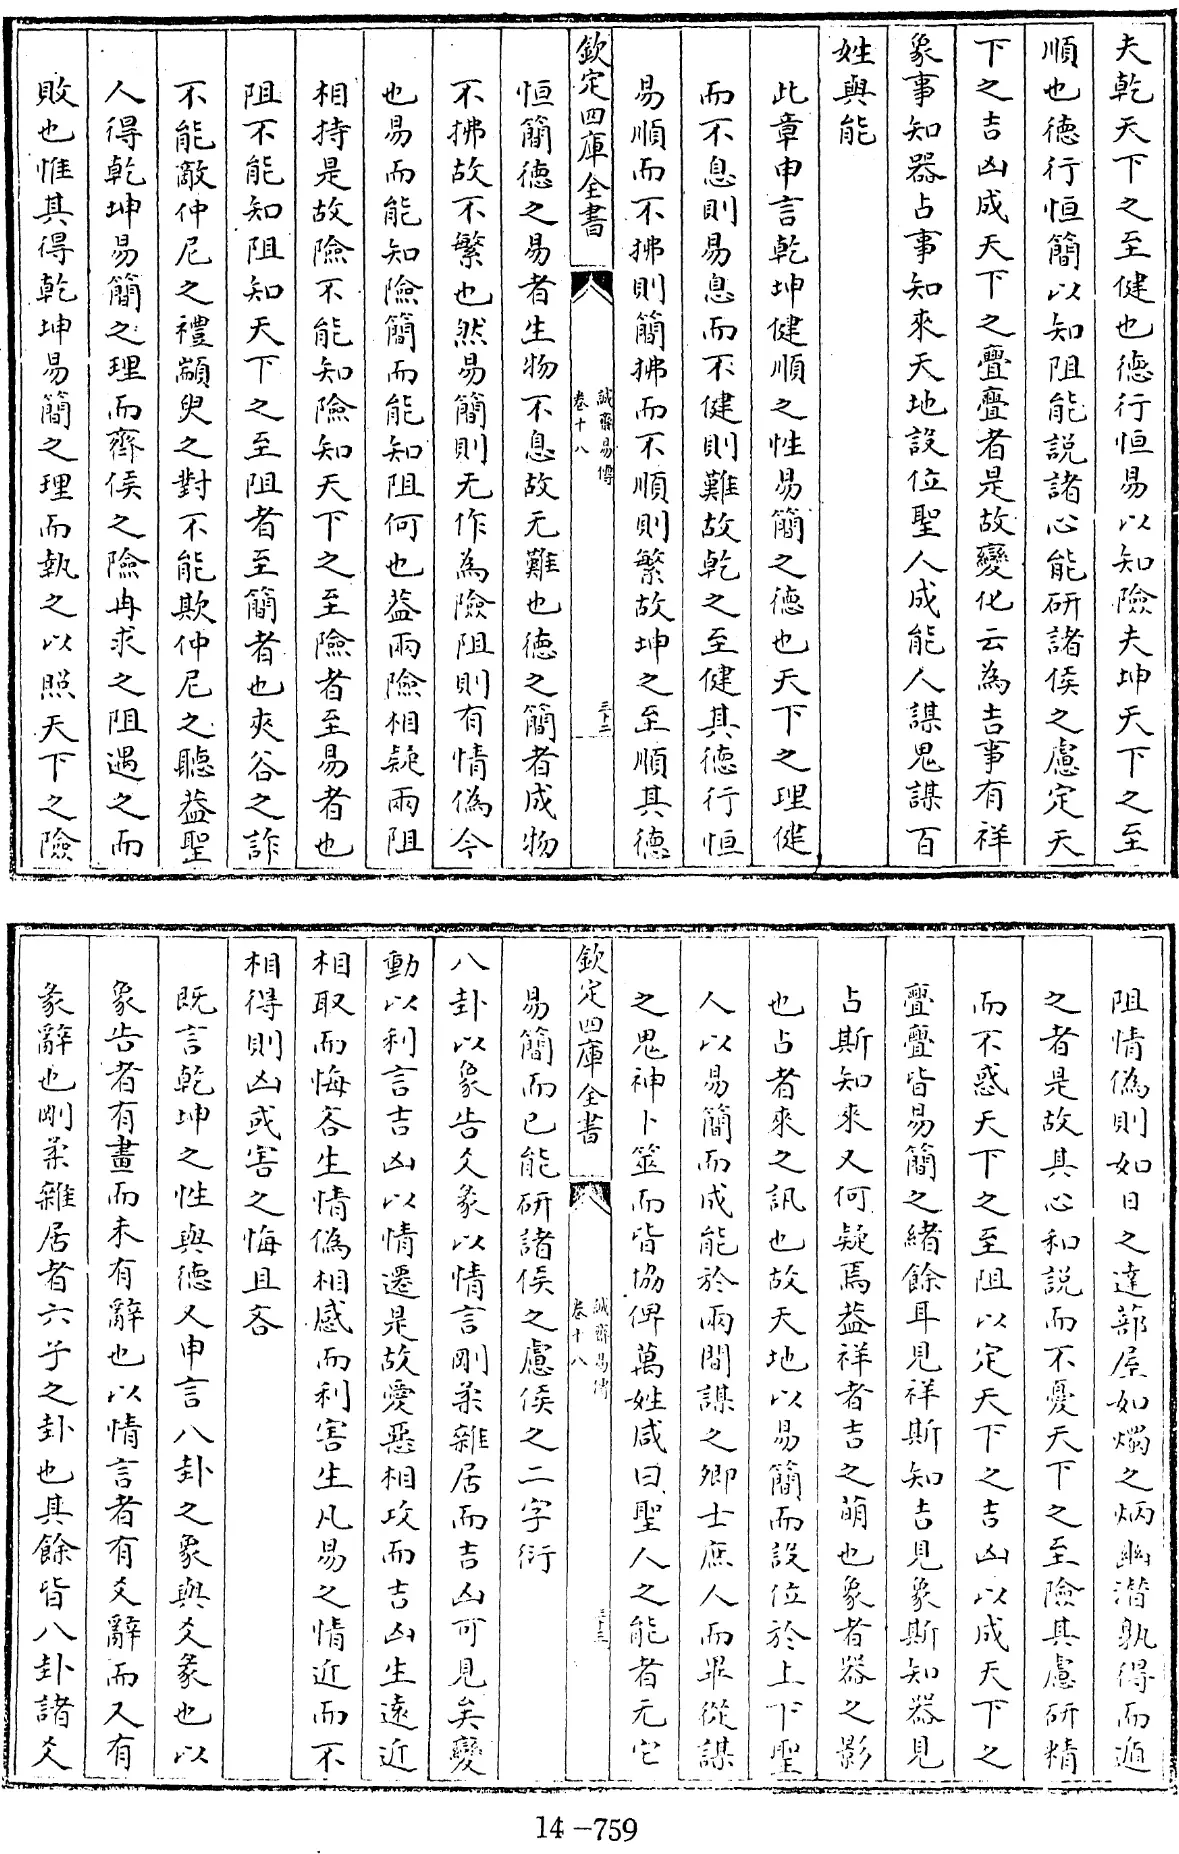 夫乾天下之至健也德行恒易以知險夫坤天下之至
順也德行恒簡以知阻能說諸心能研諸侯之慮定天
下之吉凶成天下之亹亹者是故變化云為吉事有祥
象事知器占事知來天地設位聖人成能人謀鬼謀百
姓與能
此章申言乾坤健順之性易簡之德也天下之理健
而不息則易息而不健則難故乾之至健其德行恒
易順而不拂則簡拂而不順則繁故坤之至順其德
欽定四庫全書
誠齋易傳
卷十八
三十二
恒簡德之易者生物不息故无難也德之簡者成物
不拂故不繁也然易簡則无作為險阻則有情偽今
也易而能知險簡而能知阻何也葢兩險相疑兩阻
相持是故險不能知險知天下之至險者至易者也
阻不能知阻知天下之至阻者至簡者也夾谷之詐
不能敵仲尼之禮顓臾之對不能欺仲尼之聽葢聖
人得乾坤易簡之理而齊侯之險冉求之阻遇之而
敗也惟其得乾坤易簡之理而執之以照天下之險
阻情偽則如日之達蔀屋如燭之炳幽潛孰得而遁
之者是故其心和說而不憂天下之至險其慮研精
而不惑天下之至阻以定天下之吉凶以成天下之
亹亹皆易簡之緒餘耳見祥斯知吉見象斯知器見
占斯知來又何疑焉葢祥者吉之萌也象者器之影
也占者來之訊也故天地以易簡而設位於上下聖
人以易簡而成能於兩間謀之卿士庶人而畢從謀
之鬼神卜筮而皆協俾萬姓咸曰聖人之能者无它
欽定四庫全書
誠齋易傳
卷十八
三十三
易簡而已能研諸侯之慮侯之二字衍
八卦以象告爻彖以情言剛柔雜居而吉凶可見矣變
動以利言吉凶以情遷是故愛惡相攻而吉凶生遠近
相取而悔吝生情偽相感而利害生凡易之情近而不
相得則凶或害之悔且吝
既言乾坤之性與德又申言八卦之象與爻彖也以
象告者有畫而未有辭也以情言者有爻辭而又有
彖辭也剛柔雜居者六子之卦也其餘皆八卦諸爻
14-759